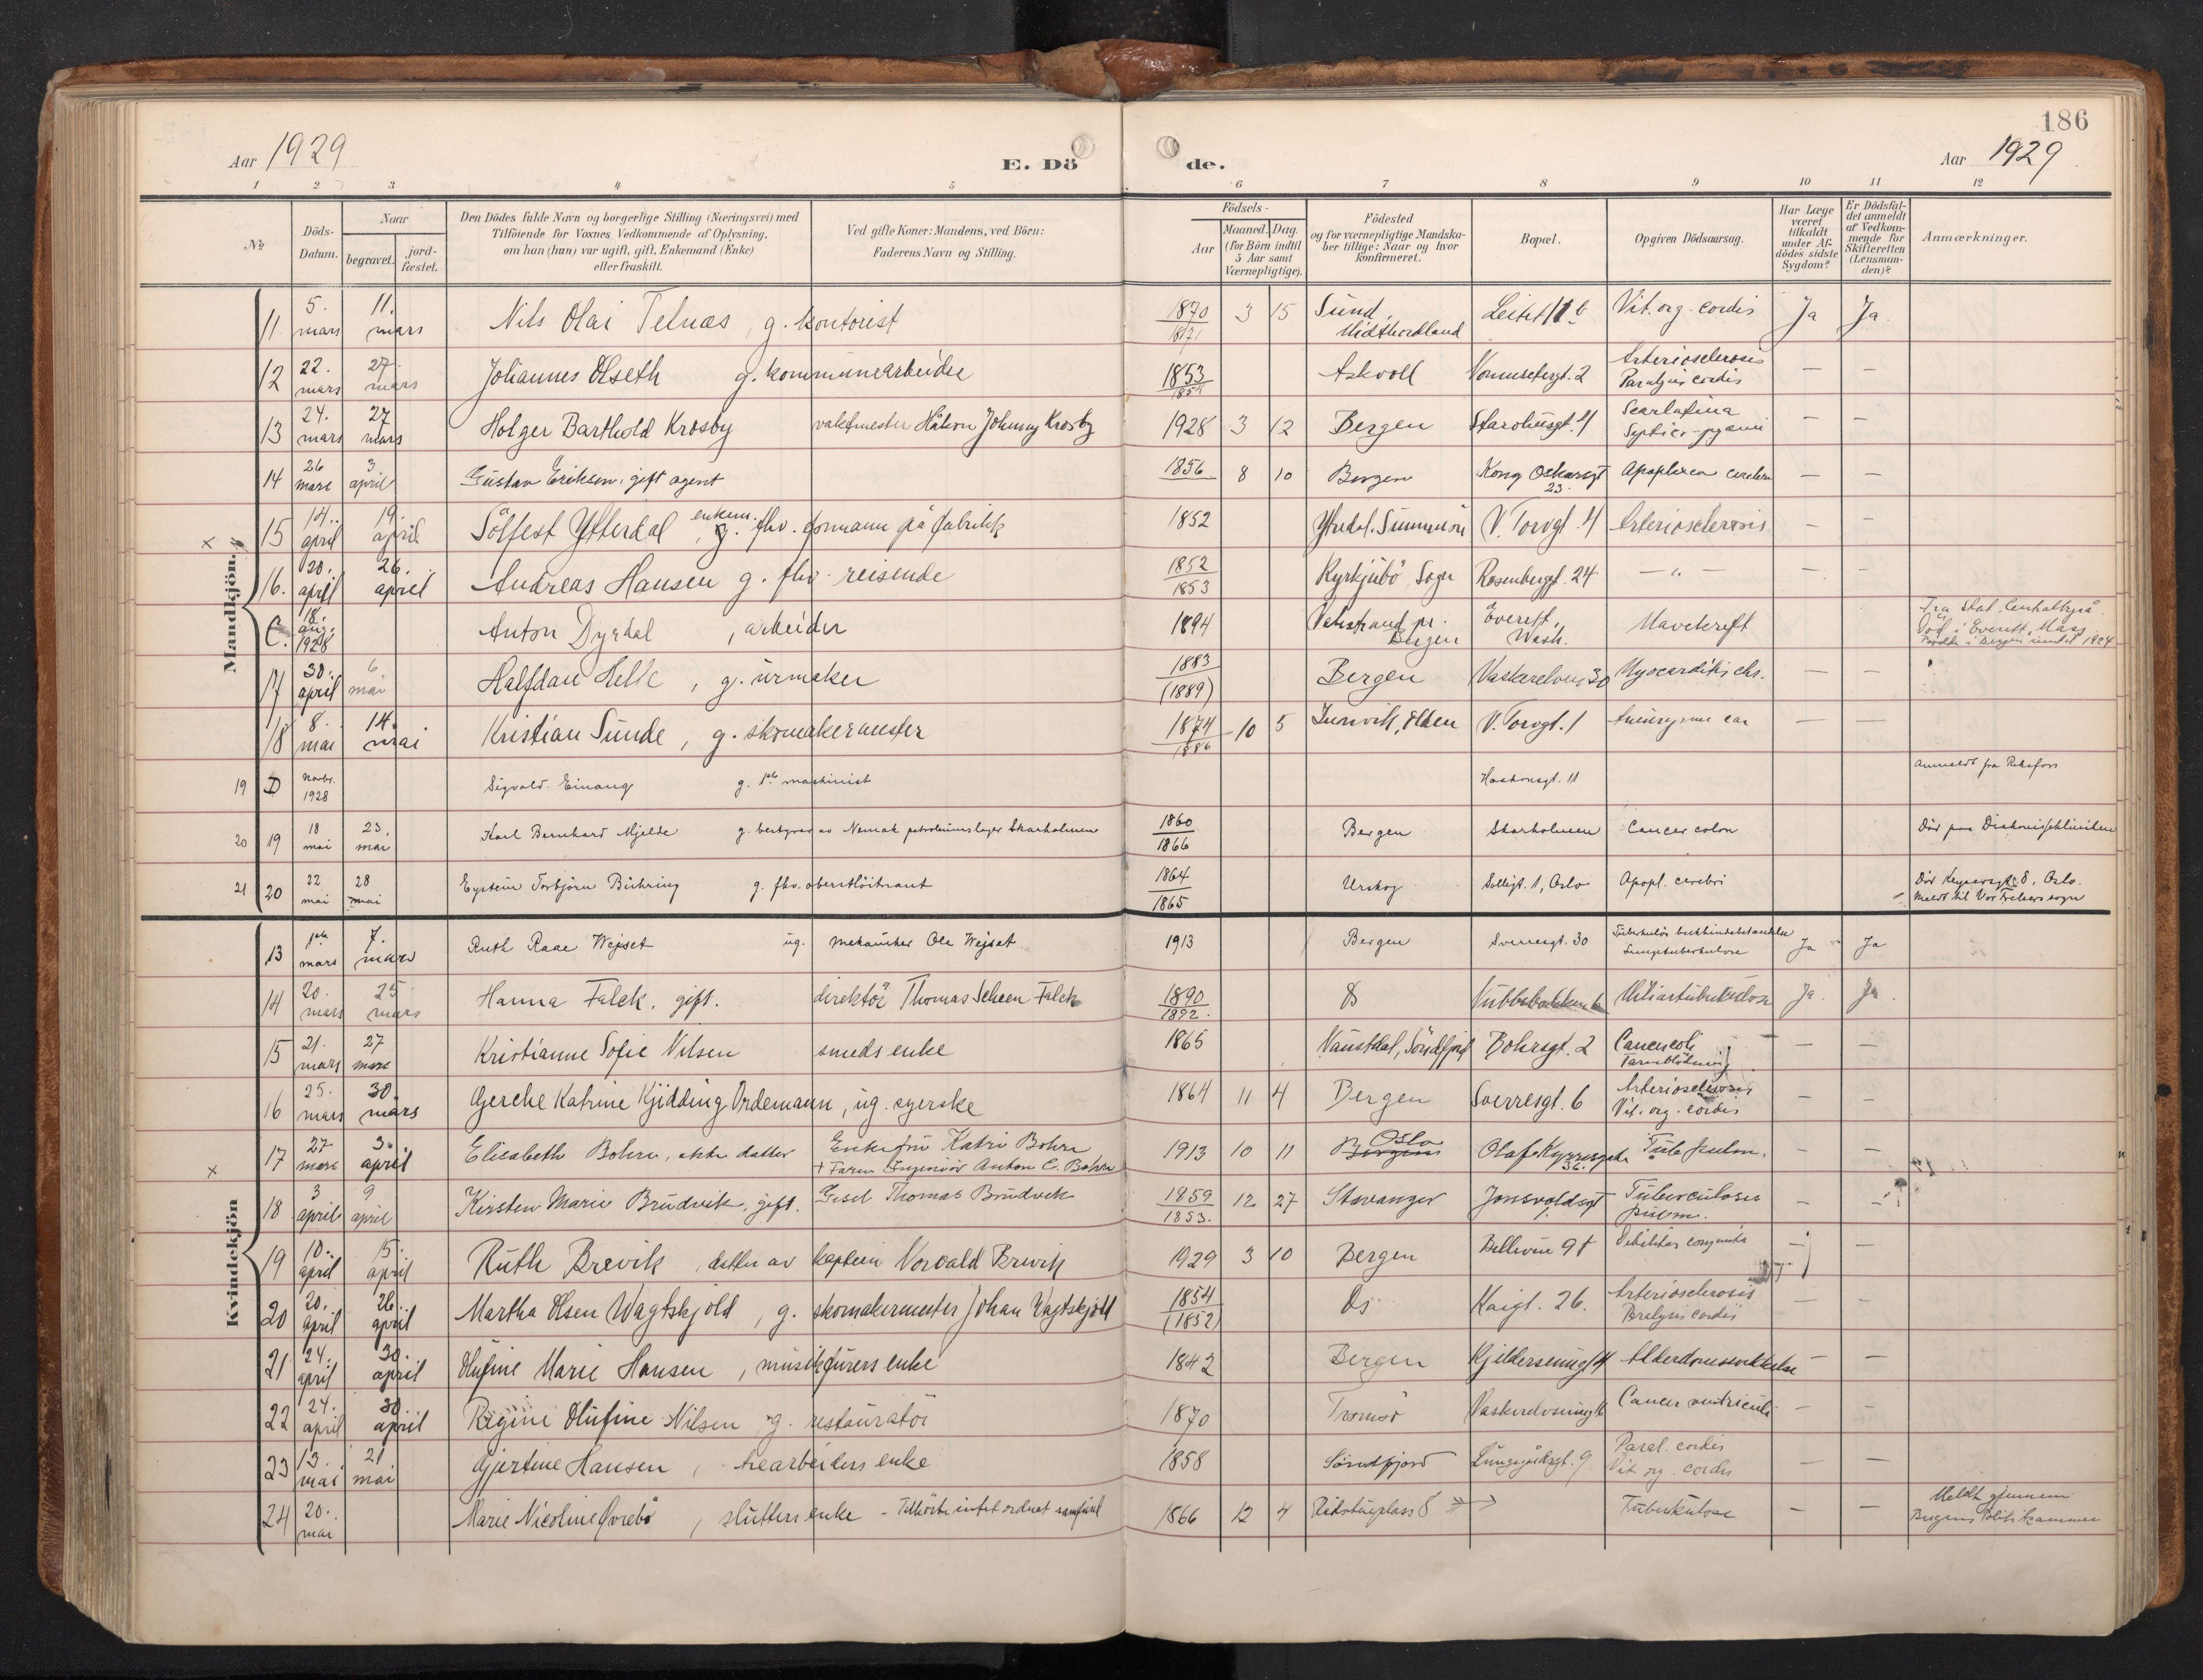 186
Aar 1929
E. Dö
de.
Aar 1929
1 2 3 4 5 6 7 8 9 10 11 12
№
Döds-Datum.
Naar
begravet.
jord-fæstet.
Den Dödes fulde Navn og borgerlige Stilling (Næringsvei) med
Tilföiende for Voxnes Vedkommende af Oplysning,
om han (hun) var ugift, gift, Enkemand (Enke)
eller fraskilt.
Ved gifte Koner: Mandens, ved Börn:
Faderens Navn og Stilling.
Födsels-
Aar
Maaned. Dag.
(for Börn indtil
5 Aar samt
Værnepligtige).
Födested
og for værnepligtige Mandska-
ber tillige: Naar og hvor
konfirmeret.
Bopæl.
Opgiven Dödsaarsag.
Har Læge
været
tilkaldt
under Af-
dödes sidste
Sygdom?
Er Dödsfal-
det anmeldt
af Vedkom-
mende for
Skifteretten
(Lensman-
den)?
Anmærkninger.
Mandkjön.
11 5. mars 11. mars Nils Olai Telnæs, g. kontorist 1870 1871 3 15 Sund, Midthordland Vit. org. cordis Ja Ja.
12 22. mars 27. mars Johannes Olseth g. kommunearbeider 1853 1854 Askvoll 2 Arteriosclerosis Paralysis cordis — —
13 24. mars 27 mars Holger Barthold Krosby vaktmester Håkon Johnny Krosby 1928 3 12 Bergen Starehusgt. 4 Scarlatina Septico-pyæmi – –
14 26 mars 3 april Gustav Eriksen, gift agent 1856 8 10 Bergen Kong Oskarsgt 23. Apoplexia cerebri — —
x 15 14. april 19. april Sölfest Ytterdal, enkem. g. fhv. formann på fabrikk 1852 V. Torvgt. 4 Arteriosclerosis – –
16. 20. april 26. april Andreas Hansen g. fhv. reisende 1852 1853 Kyrkjebö, Sogn Rosenberggt. 24 — " — – –
C. 18. aug. 1928 Anton Dyrdal, arbeider 1894 pr. Bergen Everett, Wash. Mavekreft Fra Stat. Centralbyrå. Död i Everett, Mass
17 30. april 6 mai Halfdan Helle, g. urmaker 1883 (1889) Bergen Vaskerelven 30 Myocarditis chr. — —
18 8. mai 14. mai Kristian Sunde, g. skomakermester 1874 1886 10 5 Innvik, Olden V. Torvgt. 1 — —
19 D Novbr. 1928 Sigvald Einang g. 1ste maskinist Haakonsgt. 11 Anmeldt fra Riksfors
20 19 18 mai 23. mai Karl Bernhard Mjelde g. bestyrer av Nemak petroleumslager Skarholmen 1860 1866 Bergen Skarholmen Cancer colon Död paa Diakonissekliniken
21 20 22 mai 28 mai Eystein Torbjörn Bühring g. fhv. oberstlöitnant 1864 1865 Urskog Solligt. 1, Oslo Apopl. cerebri Död Keysersgt. 8, Oslo. Meldt til Vor Frelsers sogn
Kvindekjön
13 1ste mars 7. mars Ruth Raae Wejset ug. mekaniker Ole Wejset 1913 Bergen Sverresgt. 30 Lungetuberkulose Ja Ja
14 20. mars 25 mars Hanna Falck, gift. direktör Thomas Scheen Falck 1890 1892. Os Nubbebakken 6 Miliartuberkulose Ja. Ja.
15 21. mars 27 mars Kristianne Sofie Nilsen smeds enke 1865 Naustdal, Söndfjord Bohrsgt. 2 Cancer coli Tarmblödning — —
16 25. mars 30. mars Gerche Katrine Kjidding Ordemann, ug. syerske 1864 11 4 Bergen Sverresgt. 6 Arteriosclerosis Vit. org. cordis – –
x 17 27 mars 3. april Elisabeth Bohre, ekte datter Enkefru Katri Bohre + Faren Ingeniör Anton C. Bohre 1913 10 11 Bergen Oslo Olaf Kyrresgate 36. Tub. pulm. – –
18 3 april 9 april Kirsten Marie Brudvik, gift. Gesel Thomas Brudvik 1859 1853. 12 27 Stavanger Jonsvoldsgt 1. Tuberculosis pulm. – –
19 10. april 15. april Ruth Brevik, datter av kaptein Norvald Brevik 1929 3 10 Bergen Bellevue 9 Debilitas congenita – —
20 20. april 26. april Martha Olsen Wagtskjold, g. skomakermester Johan Wagtskjold 1854 (1852) Os Kaigt. 26. Arteriosclerosis Paralysis cordis – –
21 24. april 30. april Olufine Marie Hansen, musikförers enke 1842 Bergen Alderdomssvekkelse – —
22 24. april 30 april Regine Olufine Nilsen g. restauratör 1870 Tromsö Cancer ventriculi – –
23 13. mai 21 mai Gjertine Hansen, trearbeiders enke 1858 Söndfjord Lungegårdsgt. 9 Paral. cordis Vit. org. cordis — —
24 20. mai Marie Nicoline Övrebö, slutters enke – Tilhörte intet ordnet samfund 1866 12 4 Tuberkulose – – Meldt gjennem Bergens Politikammer